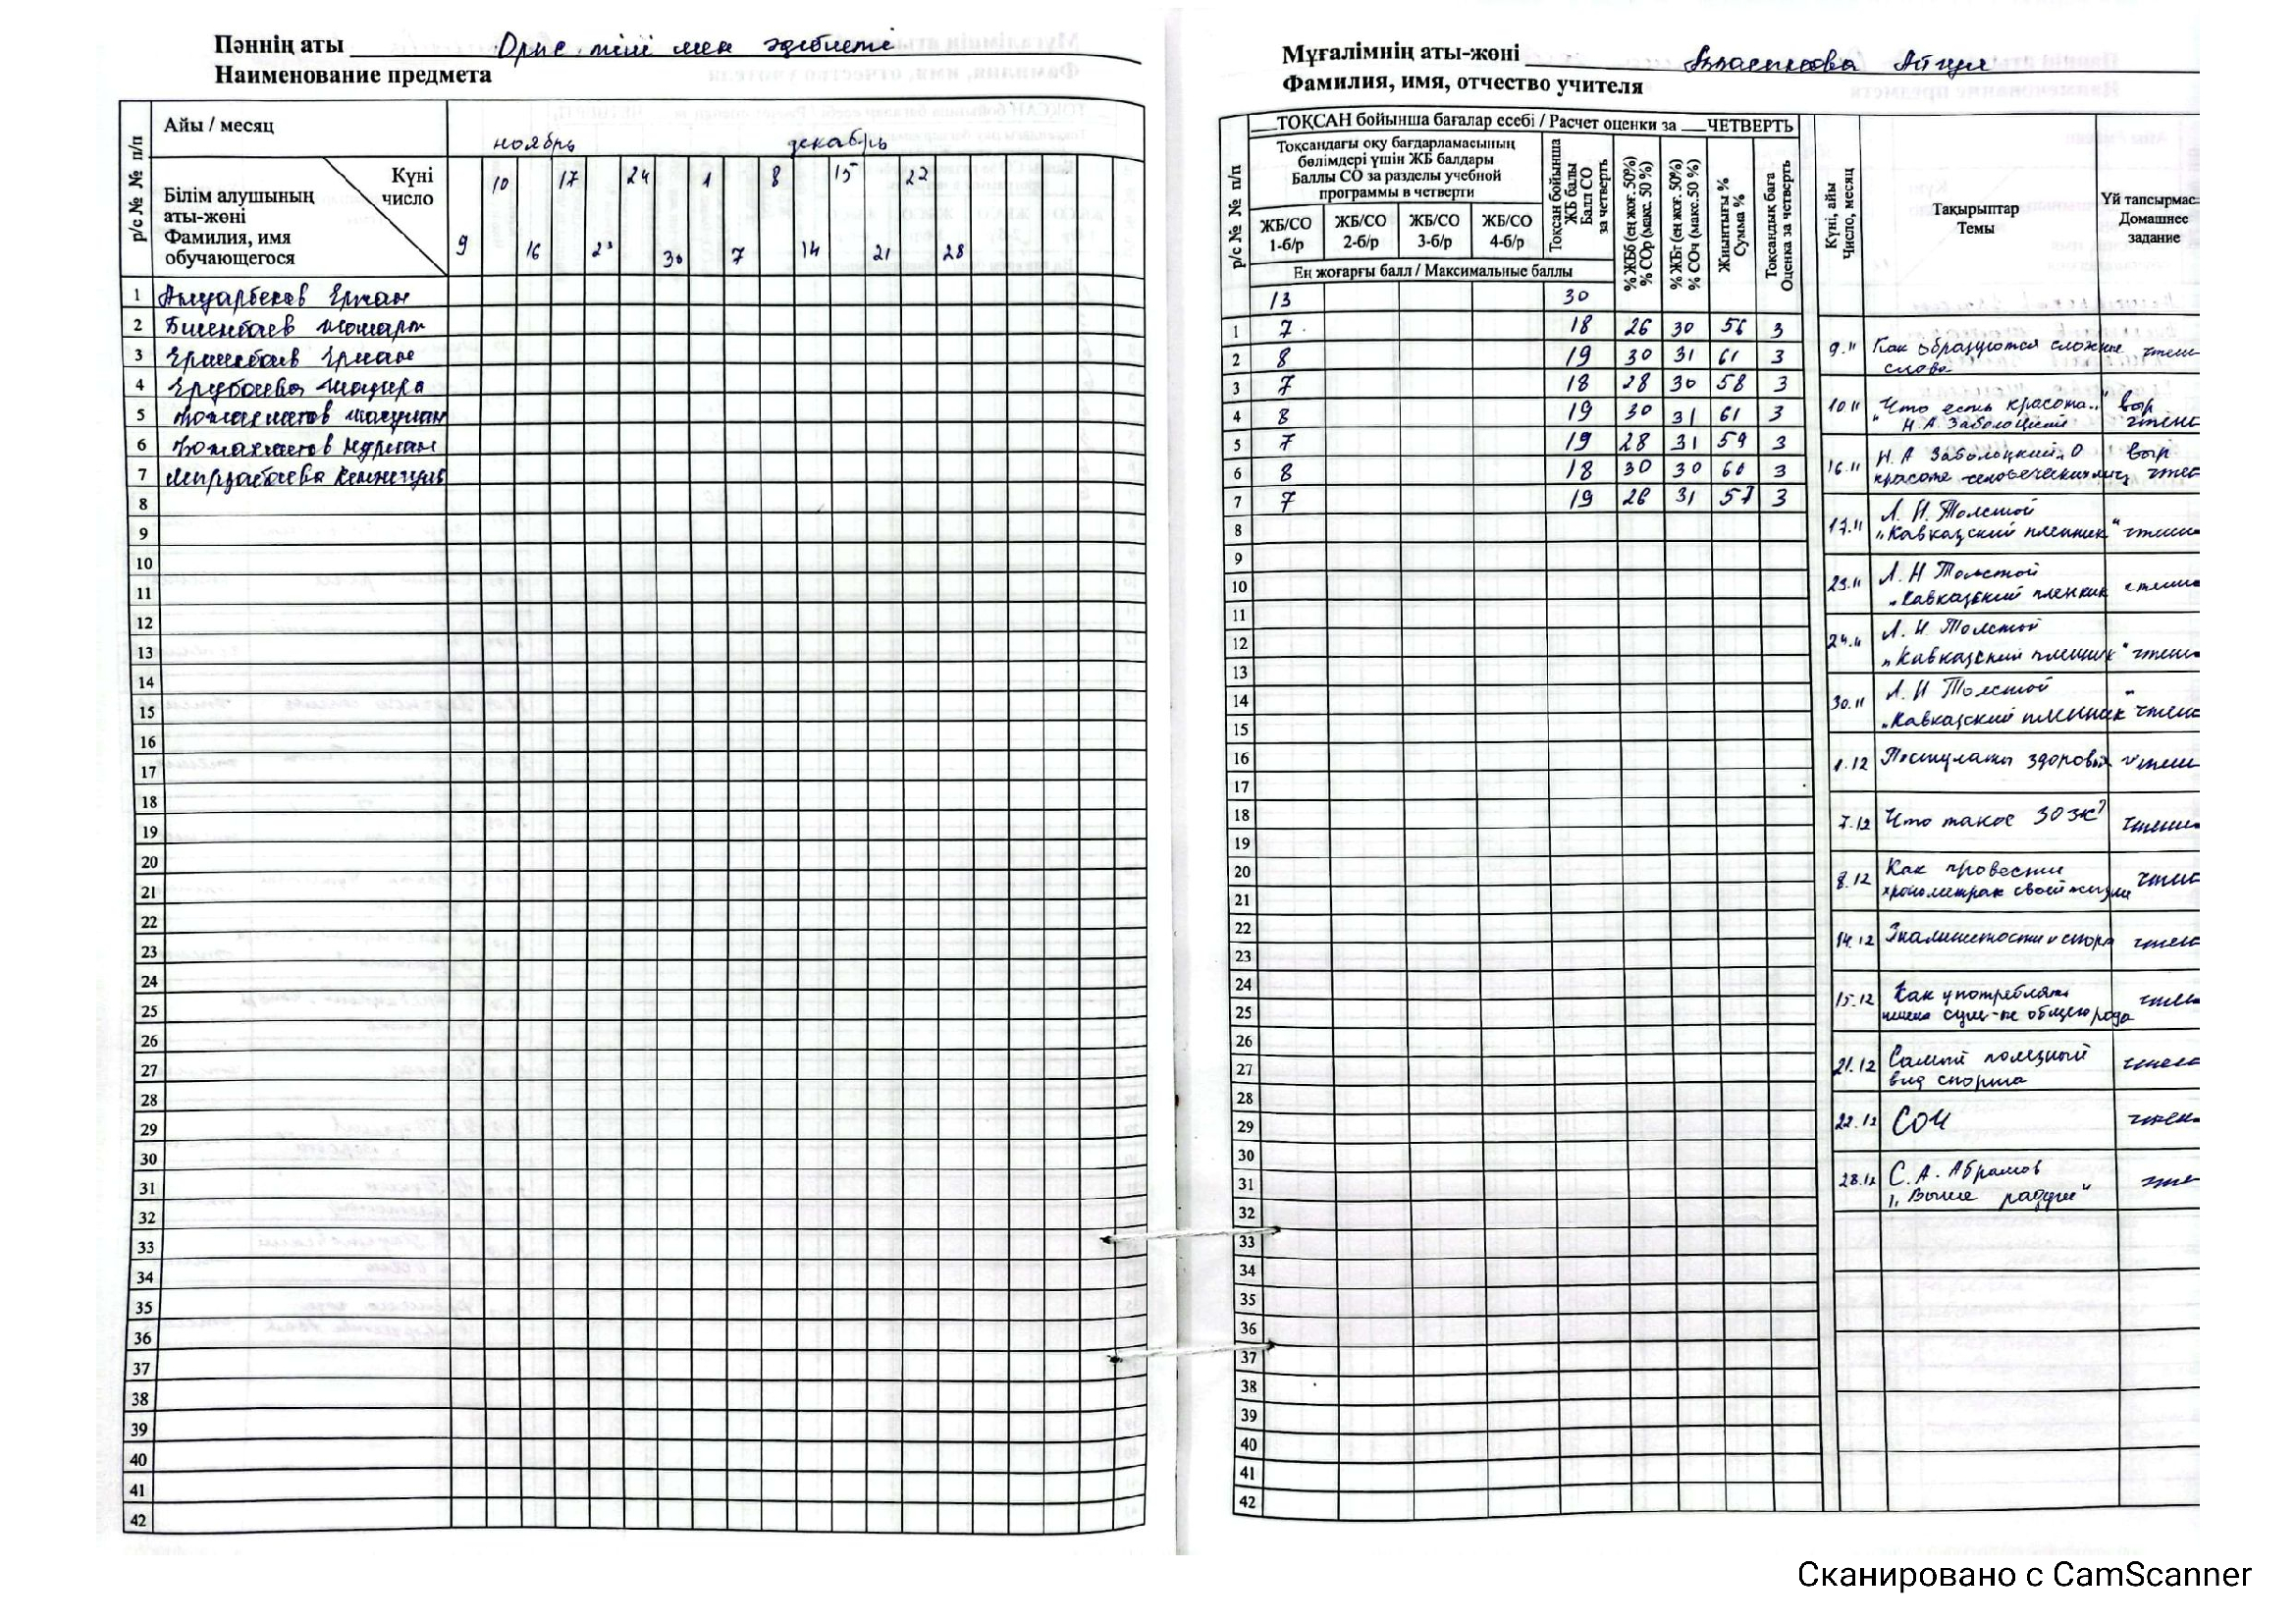 Пәннің аты Орыс тілі мен әдебиеті
Наименование предмета
р/с № № п/п
Айы / месяц
ноябрь декабрь
Күні
число
Білім алушының
аты-жөні
Фамилия, имя
обучающегося
10 17 24 1 8 15 22
9 16 23 30 7 14 21 28
1
2
3 Ершан
4
5
6 Нуржан
7
8
9
10
11
12
13
14
15
16
17
18
19
20
21
22
23
24
25
26
27
28
29
30
31
32
33
34
35
36
37
38
39
40
41
42
Мұғалімнің аты-жөні Айгул
Фамилия, имя, отчество учителя
р/с № № п/п
__ТОҚСАН бойынша бағалар есебі / Расчет оценки за ___ЧЕТВЕРТЬ
Тоқсандағы оқу бағдарламасының
бөлімдері үшін ЖБ балдары
Баллы СО за разделы учебной
программы в четверти
ЖБ/СО 1-б/р
ЖБ/СО 2-б/р
ЖБ/СО 3-б/р
ЖБ/СО 4-б/р
Тоқсан бойынша
ЖБ балы
Балл СО
за четверть
% ЖББ (ең жоғ. 50%)
% СОр (макс. 50 %)
% ЖБт (ең жоғ. 50%)
% СОч (макс.50 %)
Жиынтығы %
Сумма %
Тоқсандық баға
Оценка за четверть
Ең жоғарғы балл / Максимальные баллы
13 30
1 7 18 26 30 56 3
2 8 19 30 31 61 3
3 7 18 28 30 58 3
4 8 19 30 31 61 3
5 7 19 28 31 59 3
6 8 18 30 30 60 3
7 7 19 26 31 57 3
8
9
10
11
12
13
14
15
16
17
18
19
20
21
22
23
24
25
26
27
28
29
30
31
32
33
34
35
36
37
38
39
40
41
42
Күні, айы
Число, месяц
Тақырыптар
Темы
Үй тапсырмас
Домашнее
задание
9.11 Как образуются сложные
слова
10.11 "Что есть красота.." выр
Н.А. Заболоцкий
16.11 Н.А Заболоцкий. О выр
красоте человеческих лиц
17.11 Л. Н. Толстой
"Кавказский пленник"
23.11 Л. Н Толстой
"Кавказский пленник
24.11 Л. Н Толстой
"Кавказский пленник"
30.11 Л. Н Толстой
"Кавказский пленник"
1.12 Постулаты здоровья
7.12 Что такое ЗОЖ?
8.12 Как провести
хронометраж своей жизни
14.12
15.12 Как употреблять
имена сущ-ые общего рода
21.12 Самый полезный
вид спорта
22.12 СОЧ
28.12 С. А. Абрамов
"Выше радуги"
Сканировано с CamScanner